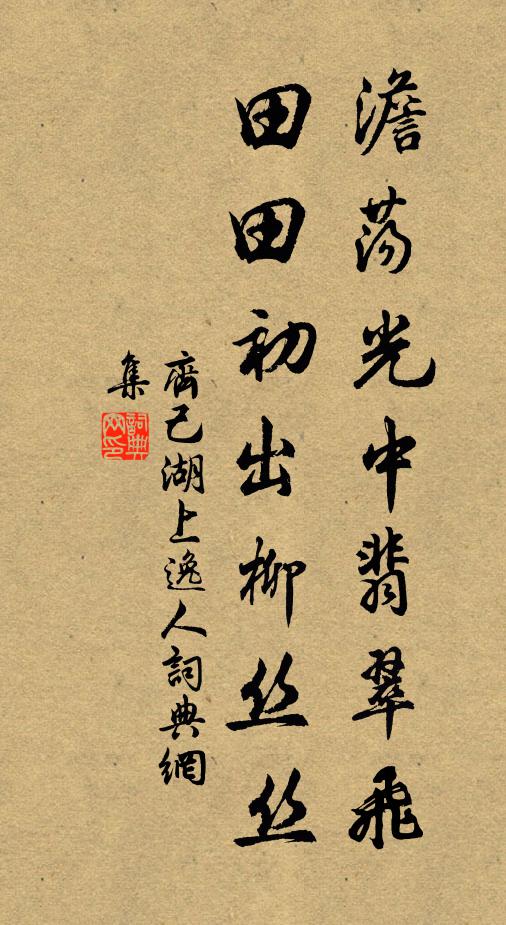 澹荡光中翡翠飛
田田初出柳丝丝
齊己湖上逸人詞典網
集
詞典網印